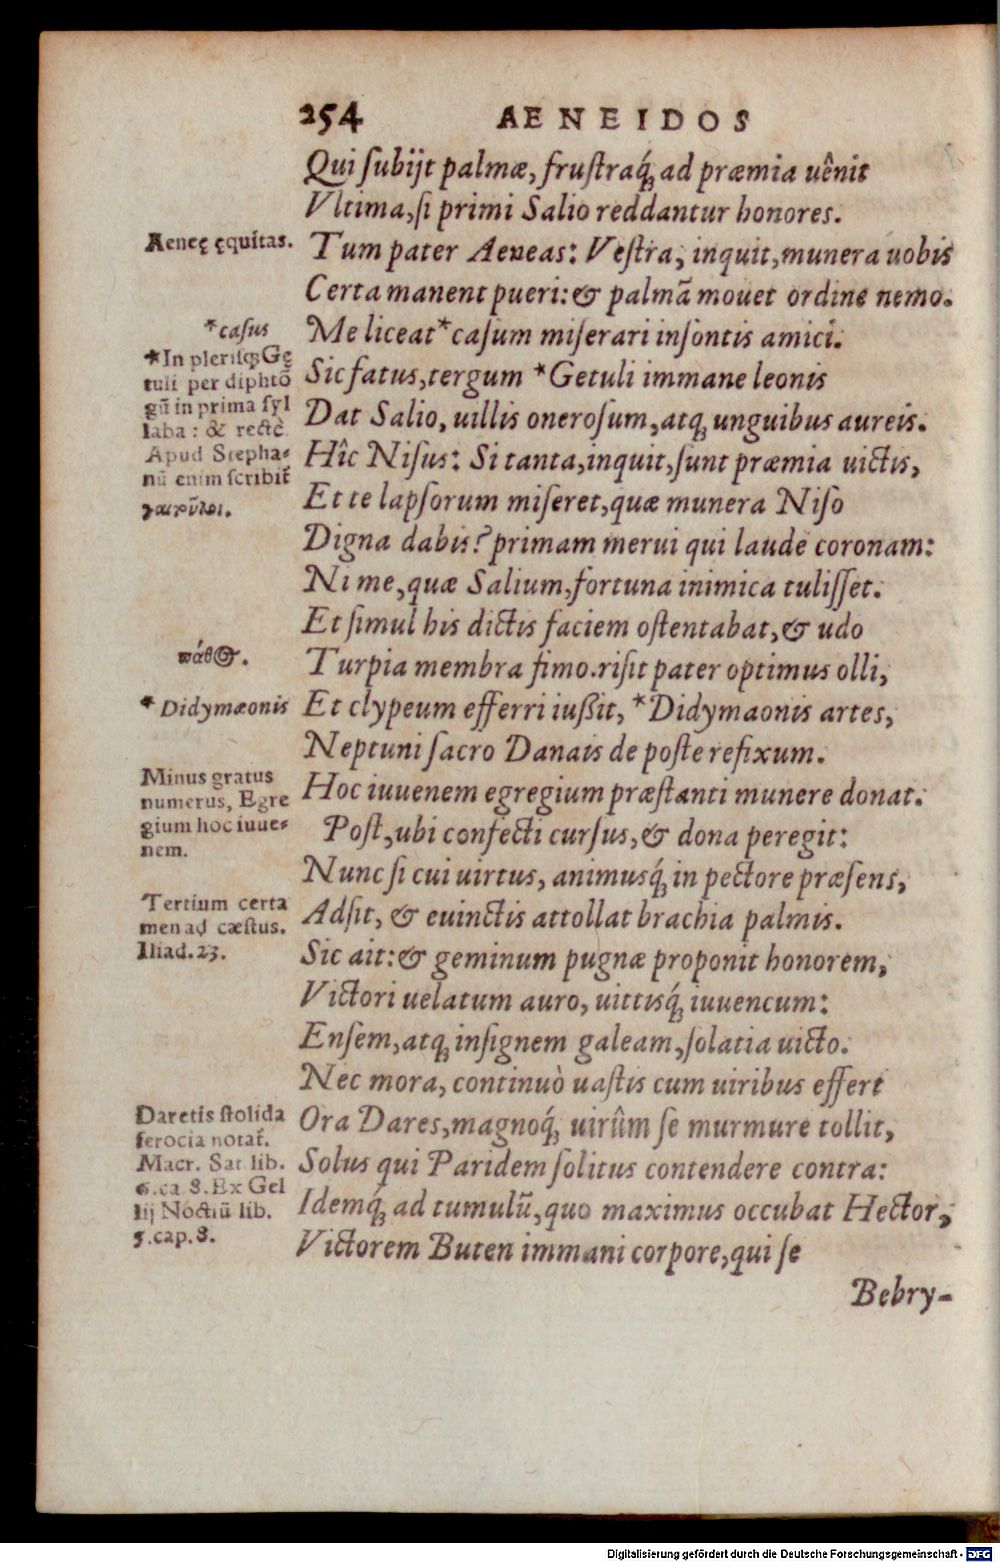 254 AENEIDOS
Qui ſubijt palmæ, fruſtraq́; ad præmia uênit
Vltima, ſi primi Salio reddantur honores.
Aeneę ęquitas.
Tum pater Aeneas: Veſtra, inquit, munera uobis
Certa manent pueri: & palmā mouet ordine nemo.
*caſus
Me liceat *caſum miſerari inſontis amici.
*In pleriſq; Gę
tuli per diphtō
gū in prima ſyl
laba: & rectè.
Apud Stepha-
nū enim ſcribit̃
γαιτῦλοι.
Sic fatus, tergum *Getuli immane leonis
Dat Salio, uillis oneroſum, atq; unguibus aureis.
Hîc Niſus: Si tanta, inquit, ſunt præmia uictis,
Et te lapſorum miſeret, quæ munera Niſo
Digna dabis? primam merui qui laude coronam:
Ni me, quæ Salium, fortuna inimica tuliſſet.
Et ſimul his dictis faciem oſtentabat, & udo
πάθος.
Turpia membra fimo. riſit pater optimus olli,
*Didymæonis
Et clypeum efferri iußit, *Didymaonis artes,
Neptuni ſacro Danais de poſte refixum.
Minus gratus
numerus, Egre
gium hoc iuue-
nem.
Hoc iuuenem egregium præſtanti munere donat.
Poſt, ubi confecti curſus, & dona peregit:
Nunc ſi cui uirtus, animusq́; in pectore præſens,
Tertium certa
men ad cæſtus.
Iliad. 23.
Adſit, & euinctis attollat brachia palmis.
Sic ait: & geminum pugnæ proponit honorem,
Victori uelatum auro, uittisq́; iuuencum:
Enſem, atq; inſignem galeam, ſolatia uicto.
Nec mora, continuò uaſtis cum uiribus effert
Daretis ſtolida
ferocia notat̃.
Macr. Sat lib.
6. ca. 8. Ex Gel
lij Noctiū lib.
5. cap. 8.
Ora Dares, magnoq́; uirûm ſe murmure tollit,
Solus qui Paridem ſolitus contendere contra:
Idemq́; ad tumulū, quo maximus occubat Hector,
Victorem Buten immani corpore, qui ſe
Bebry-
Digitalisierung gefördert durch die Deutsche Forschungsgemeinschaft - DFG